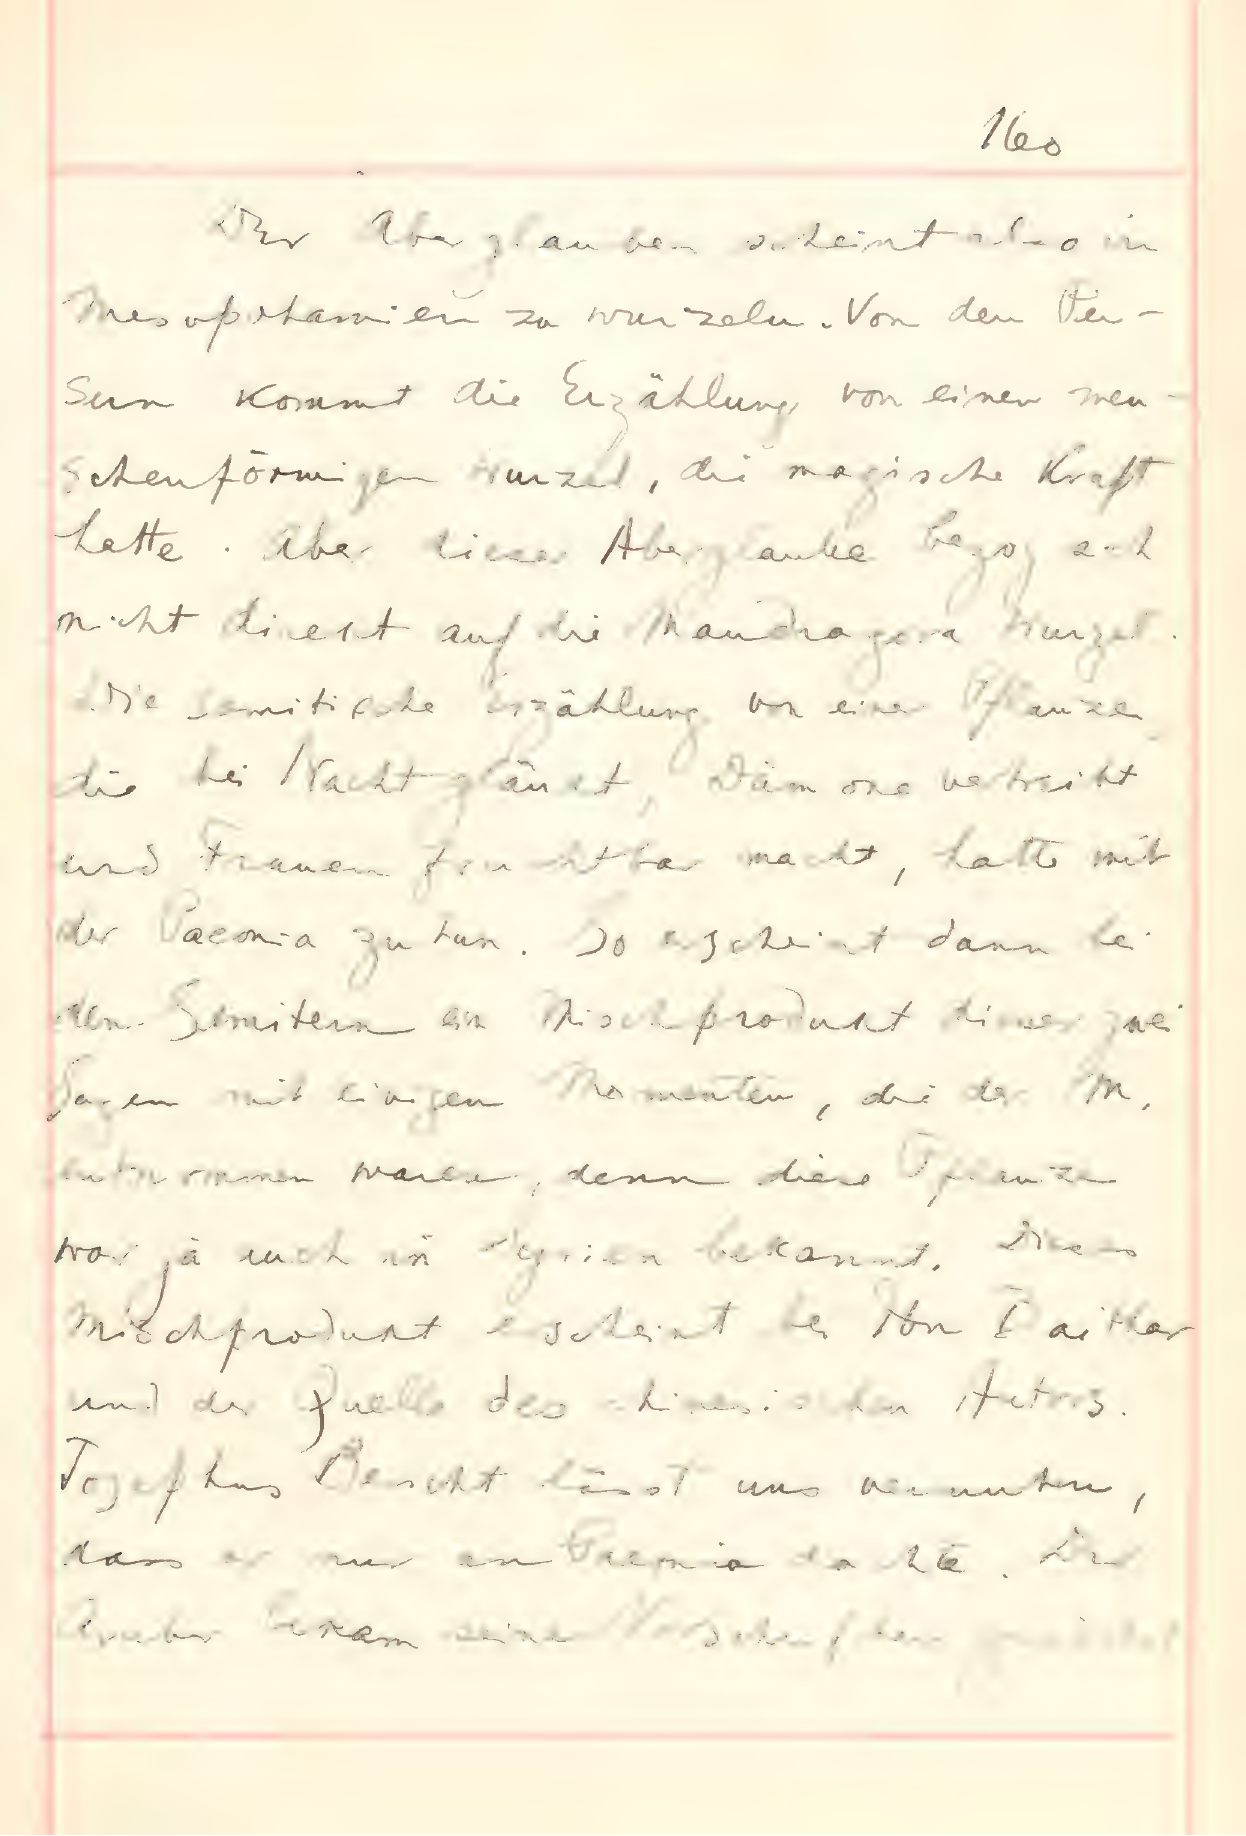 160
Der Aberglauben scheint also in
Mesopothamien zu wurzeln. Von den Per-
sern kommt die Erzählung von einen men-
schenförmigen Wurzel, die magische Kraft
hatte. Aber dieser Aberglaube bezog sich
nicht direkt auf die Mandragora Wurzel.
Die semitische Erzählung von einer Pflanze,
die bei Nacht glänzt, Dämone vertreibt
und Frauen fruchtbar macht, hatte mit
der Paeonia zu tun. So erscheint dann bei
den Semitern ein Mischprodukt dieser zwei
Sagen mit einigen Momenten, die der M.
entnommen waren, denn diese Pflanze
war ja auch in Syrien bekannt. Dieses
Mischprodukt erscheint bei Ibn Baithar
und der Quelle des chinesischen Autors.
Josephus Bericht lässt uns vermuten,
dass er nur an Paeonia dachte. Der
Araber bekam seine